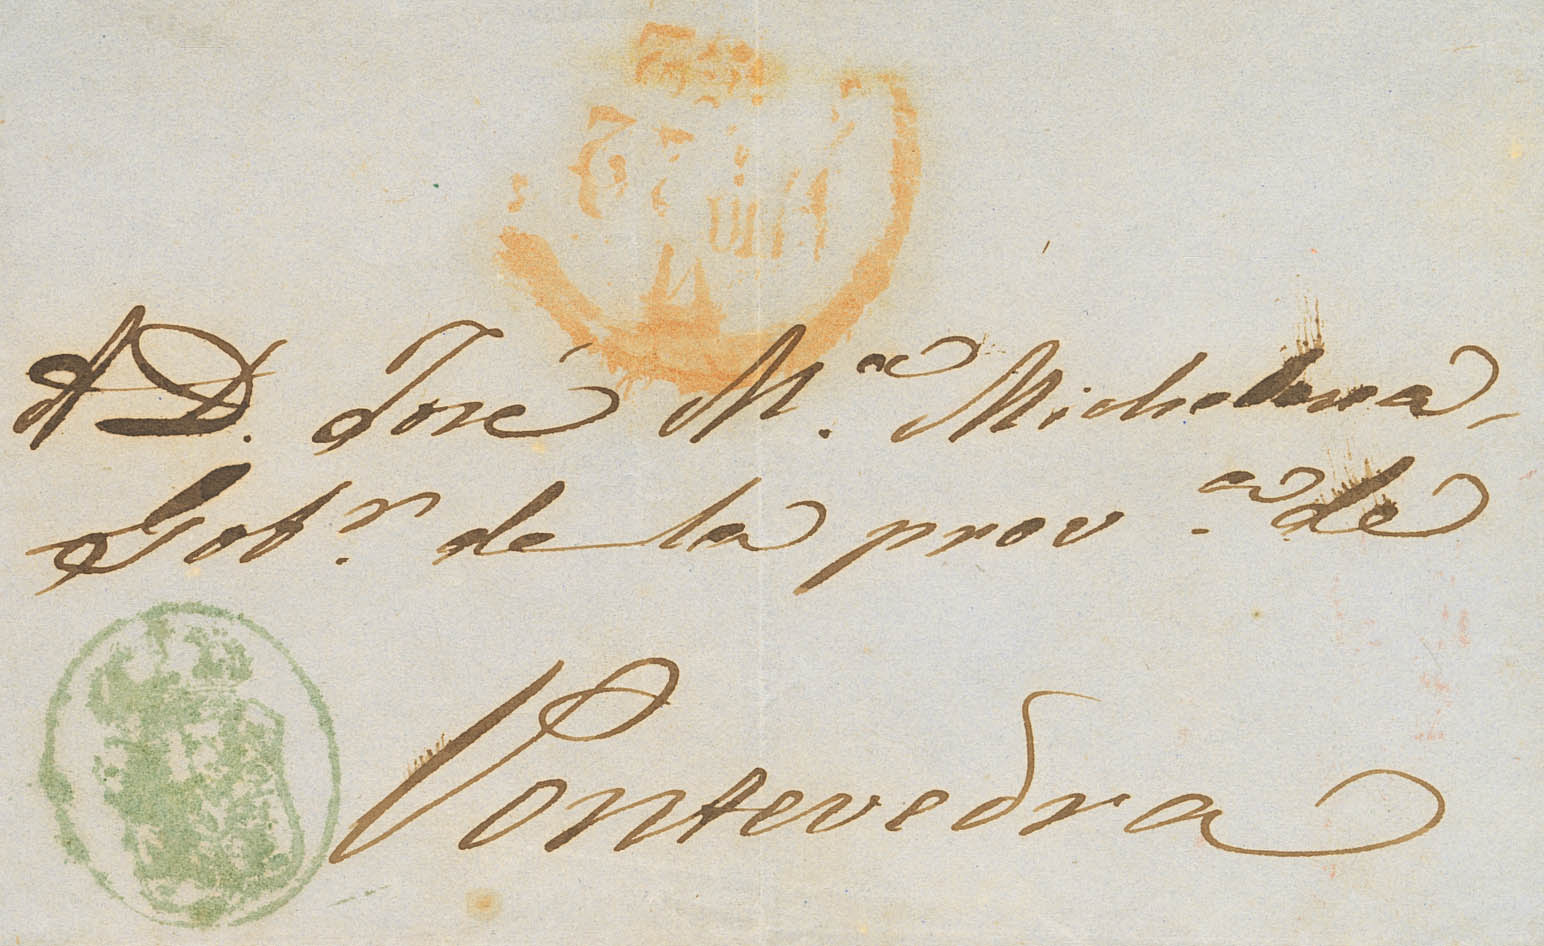 A D. José M.ª Michelena,
Gobr. de la prov.ª de
Pontevedra